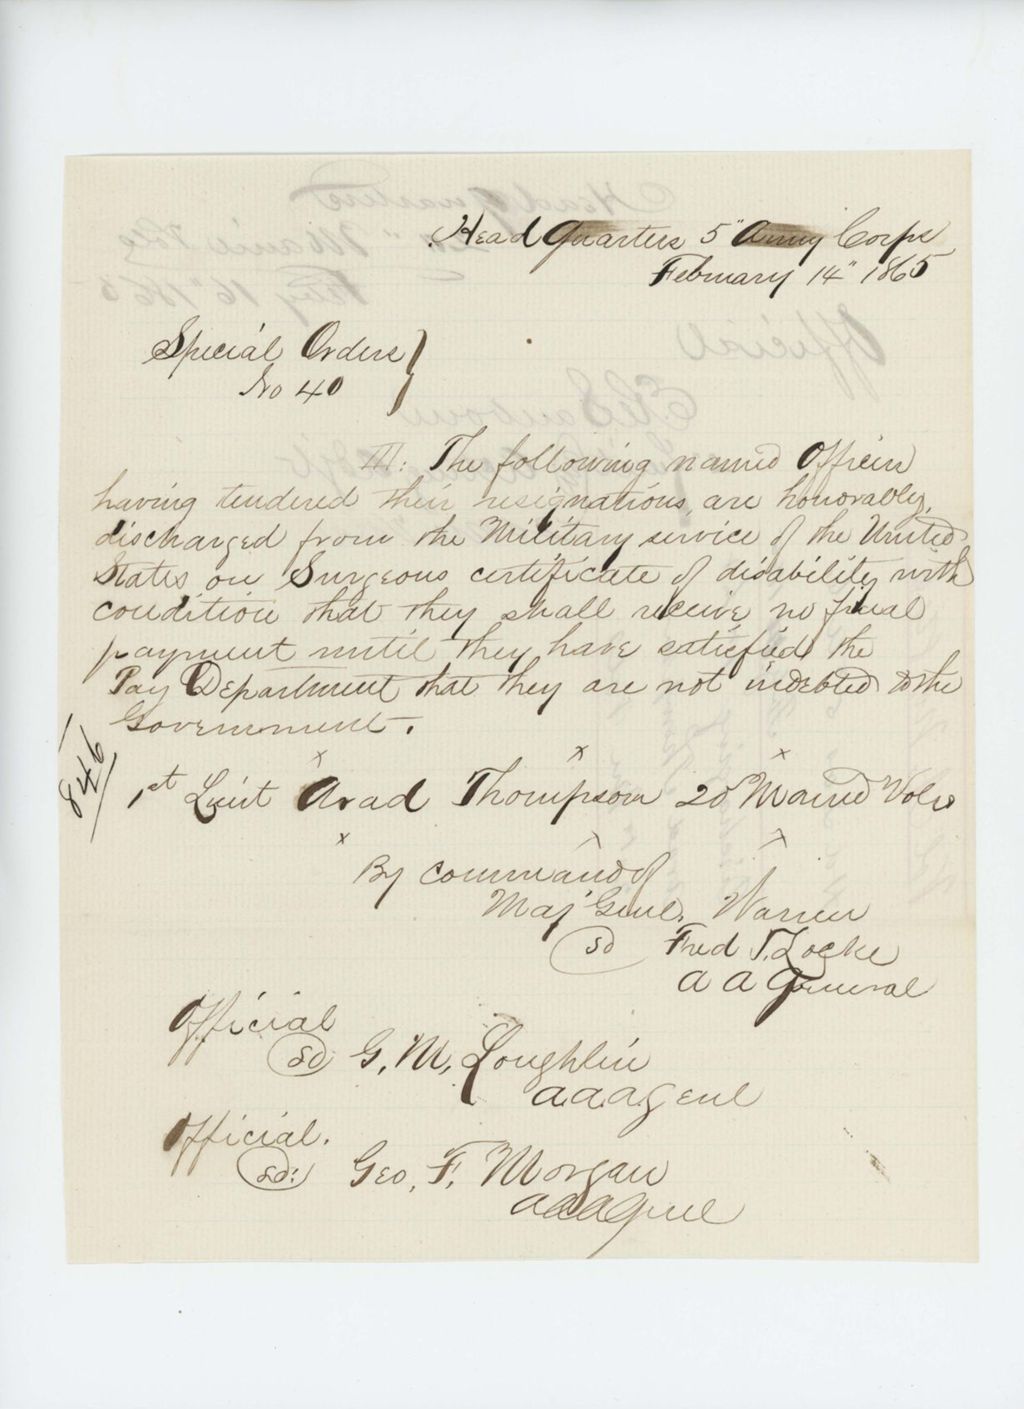 Head Quarters 5" Army Corps
February 14" 1865
Special Orders
No 40
III: The following named Officers
having tendered their resignations, are honorably
discharged from the Military service of the United
States on Surgeons certificate of disability with
condition that they shall receive no final
payment until they have satisfied the
Pay Department that they are not indebted to the
Government.
846
1st Lieut Arad Thompson 20" Maine Vols
By command of
Maj Genl. Warren
sd Fred T. Locke
A A General
Official
sd G. M. Loughlin
a.a.a.Genl
Official.
sd: Geo. F. Morgan
AAAGenl